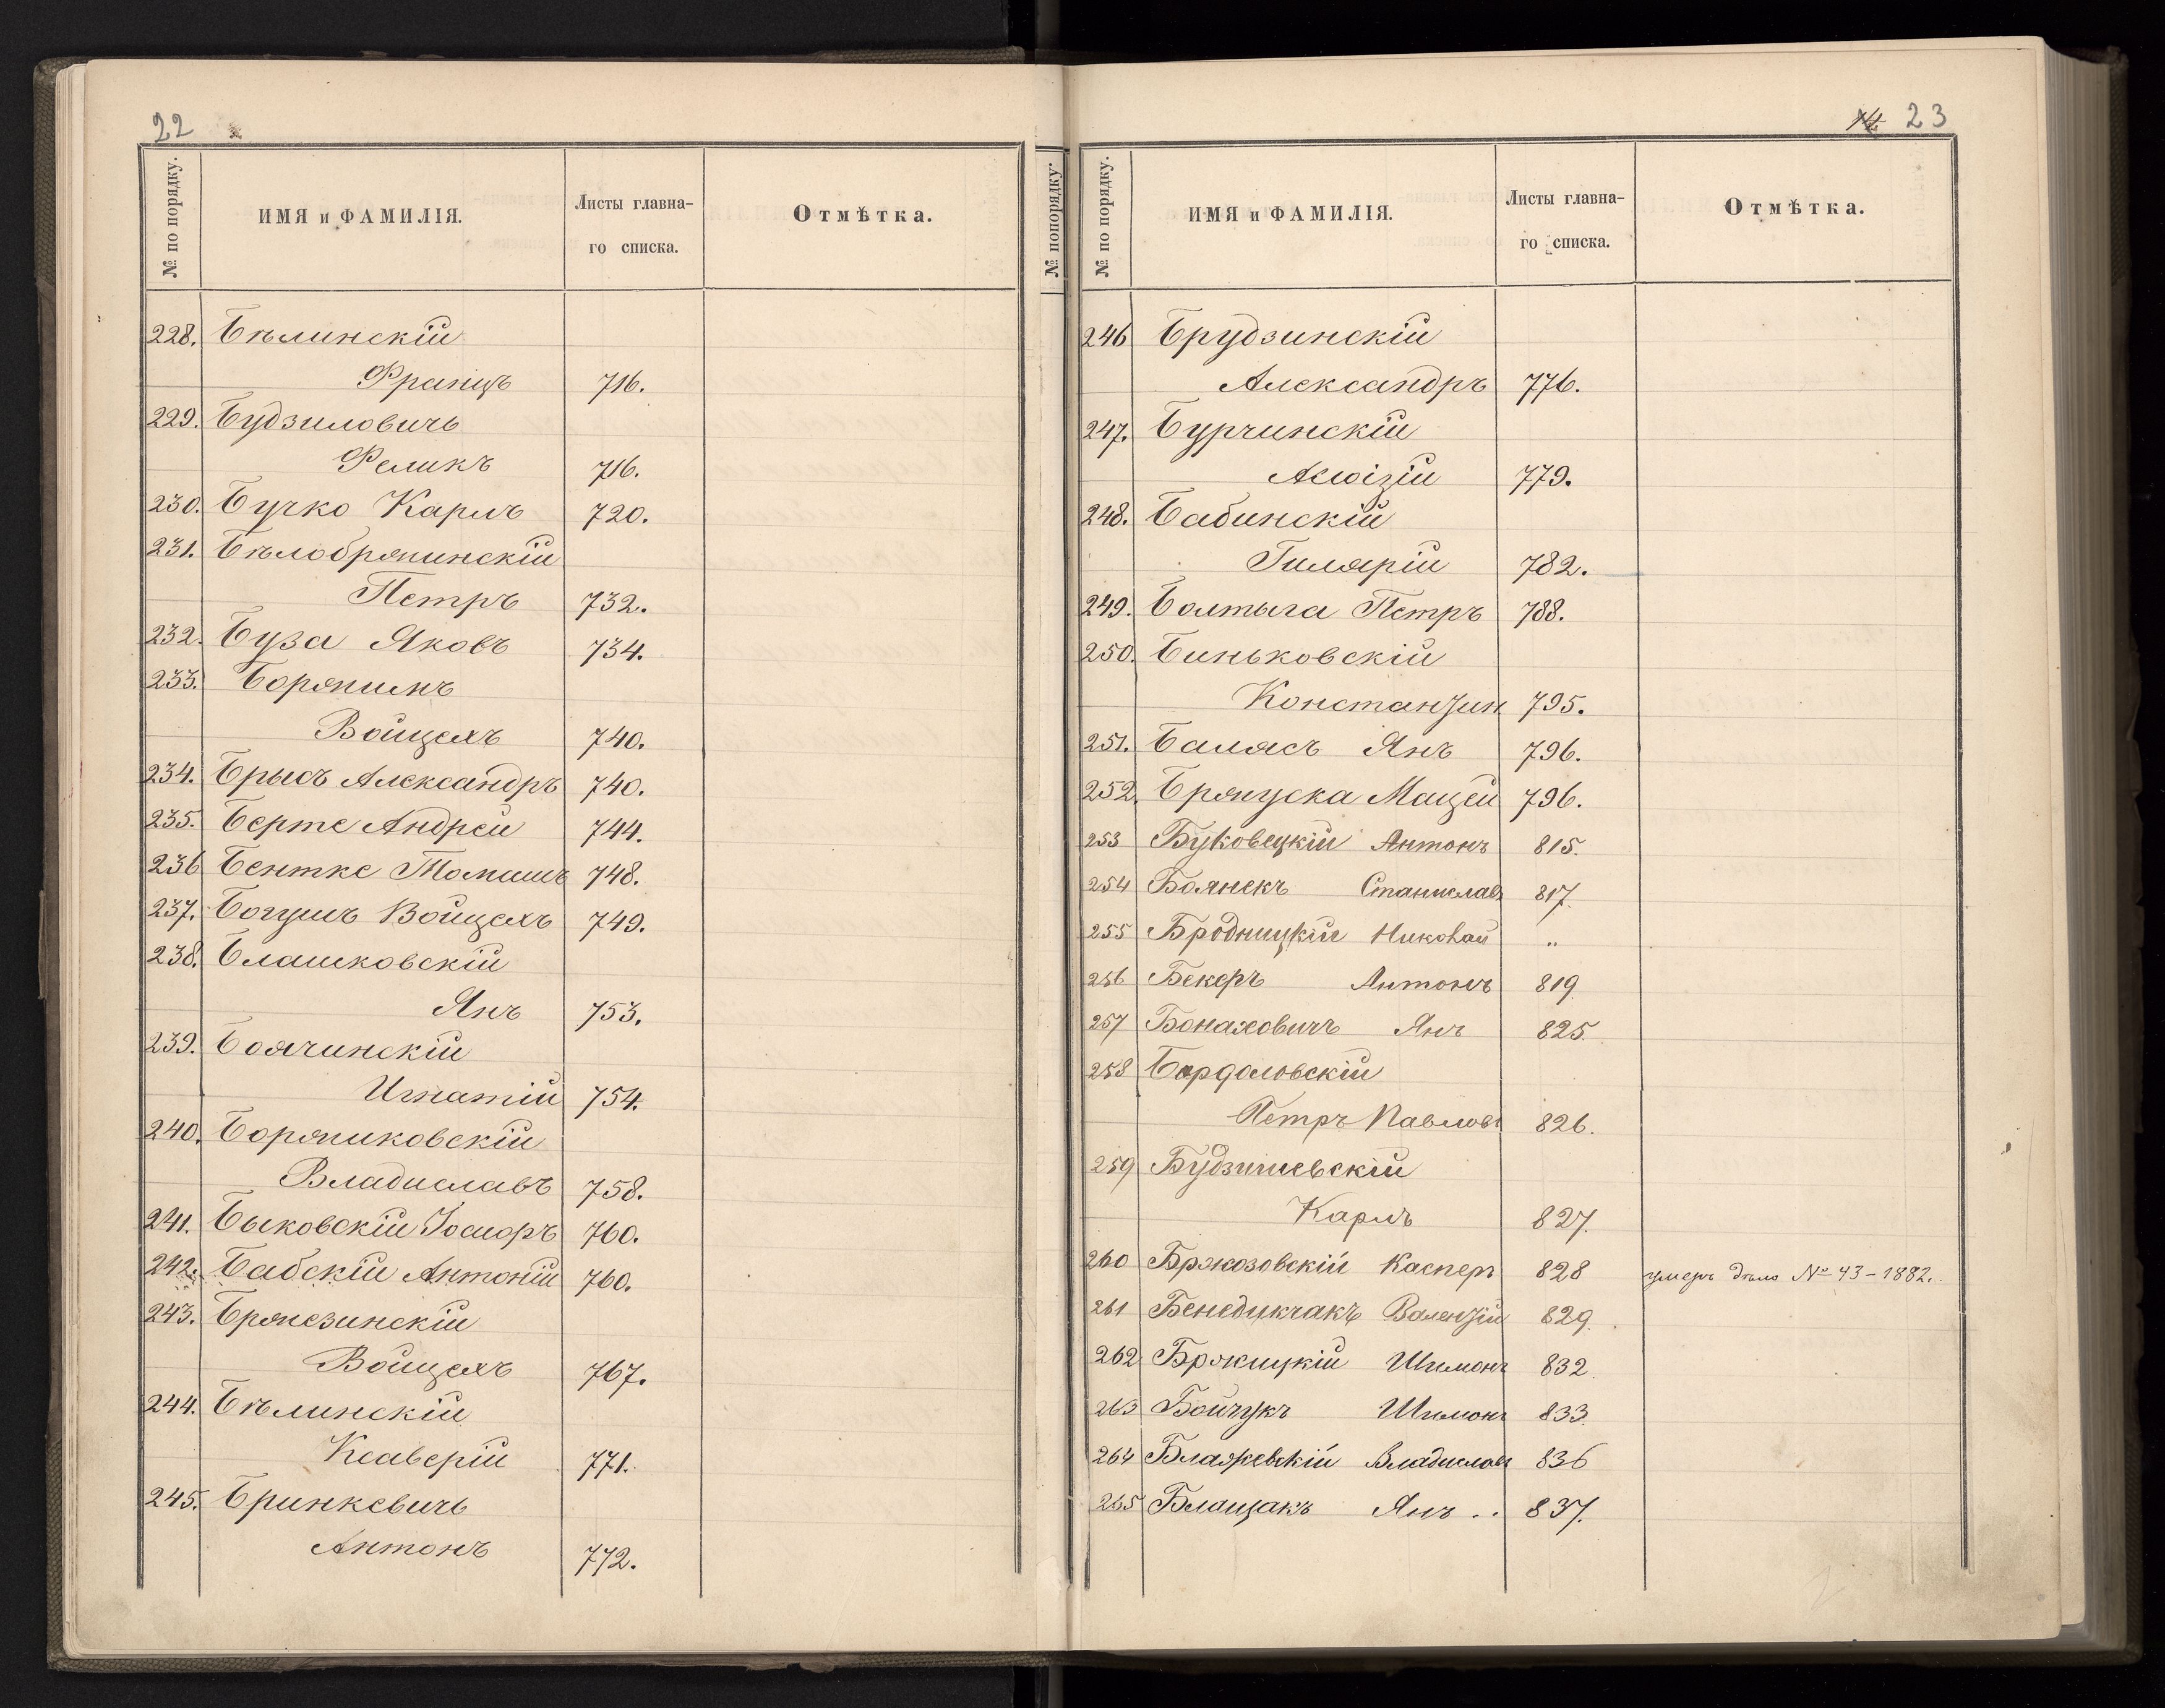 22
№ по порядку.
ИМЯ и ФАМИЛІЯ.
Листы главна-
го списка.
Отмѣтка.
228. Бѣлинскій
Францъ 716.
229. Будзиловичъ
Феликъ 716.
230. Бучко Карлъ 720.
231. Бѣлобржинскій
Петръ 732.
232. Буза Яковъ 734.
233.
Войцехъ 740.
234. Брысъ Александръ 740.
235. Берте Андрей 744.
236 Бентке Томашъ 748.
237. Богушъ Войцехъ 749.
238. Блашковскій
Янъ 753.
239. Боячинскій
Игнатій 754.
240.
Владиславъ 758.
241. Быковскій 760.
242. Бабскій Антоній 760.
243. Бржезинскій
Войцехъ 767.
244. Бѣлинскій
Ксаверій 771.
245. Бринкевичъ
Антонъ 772.
№ попорядку.
14 23
№ по порядку.
ИМЯ и ФАМИЛІЯ.
Листы главна-
го списка.
Отмѣтка.
246 Брудзинскій
Александръ 776.
247. Бурчинскій
Алоізій 779.
248. Бабинскій
Гилярій 782.
249. Болтыга Петръ 788.
250. Биньковскій
Констанцин 795.
251. Балясъ Янъ 796.
252. Мацей 796.
253 Буковецкій Антонъ 815.
254 Боянекъ Станиславъ 817.
255 Бродницкій Николай „
256 Бекеръ Антонъ 819
257 Бонаховичъ Янъ 825.
258
Петръ Павловъ 826.
259 Будзишевскій
Карлъ 827.
260 Бржозовскій Касперъ 828 умеръ дѣло № 43-1882.
261 Бенедикчакъ Валенцій 829.
262 Бржицкій Шимонъ 832.
263 Бойчукъ Шимонъ 833.
264 Блажевскій Владиславъ 836
265 Блащакъ Янъ .. 837.